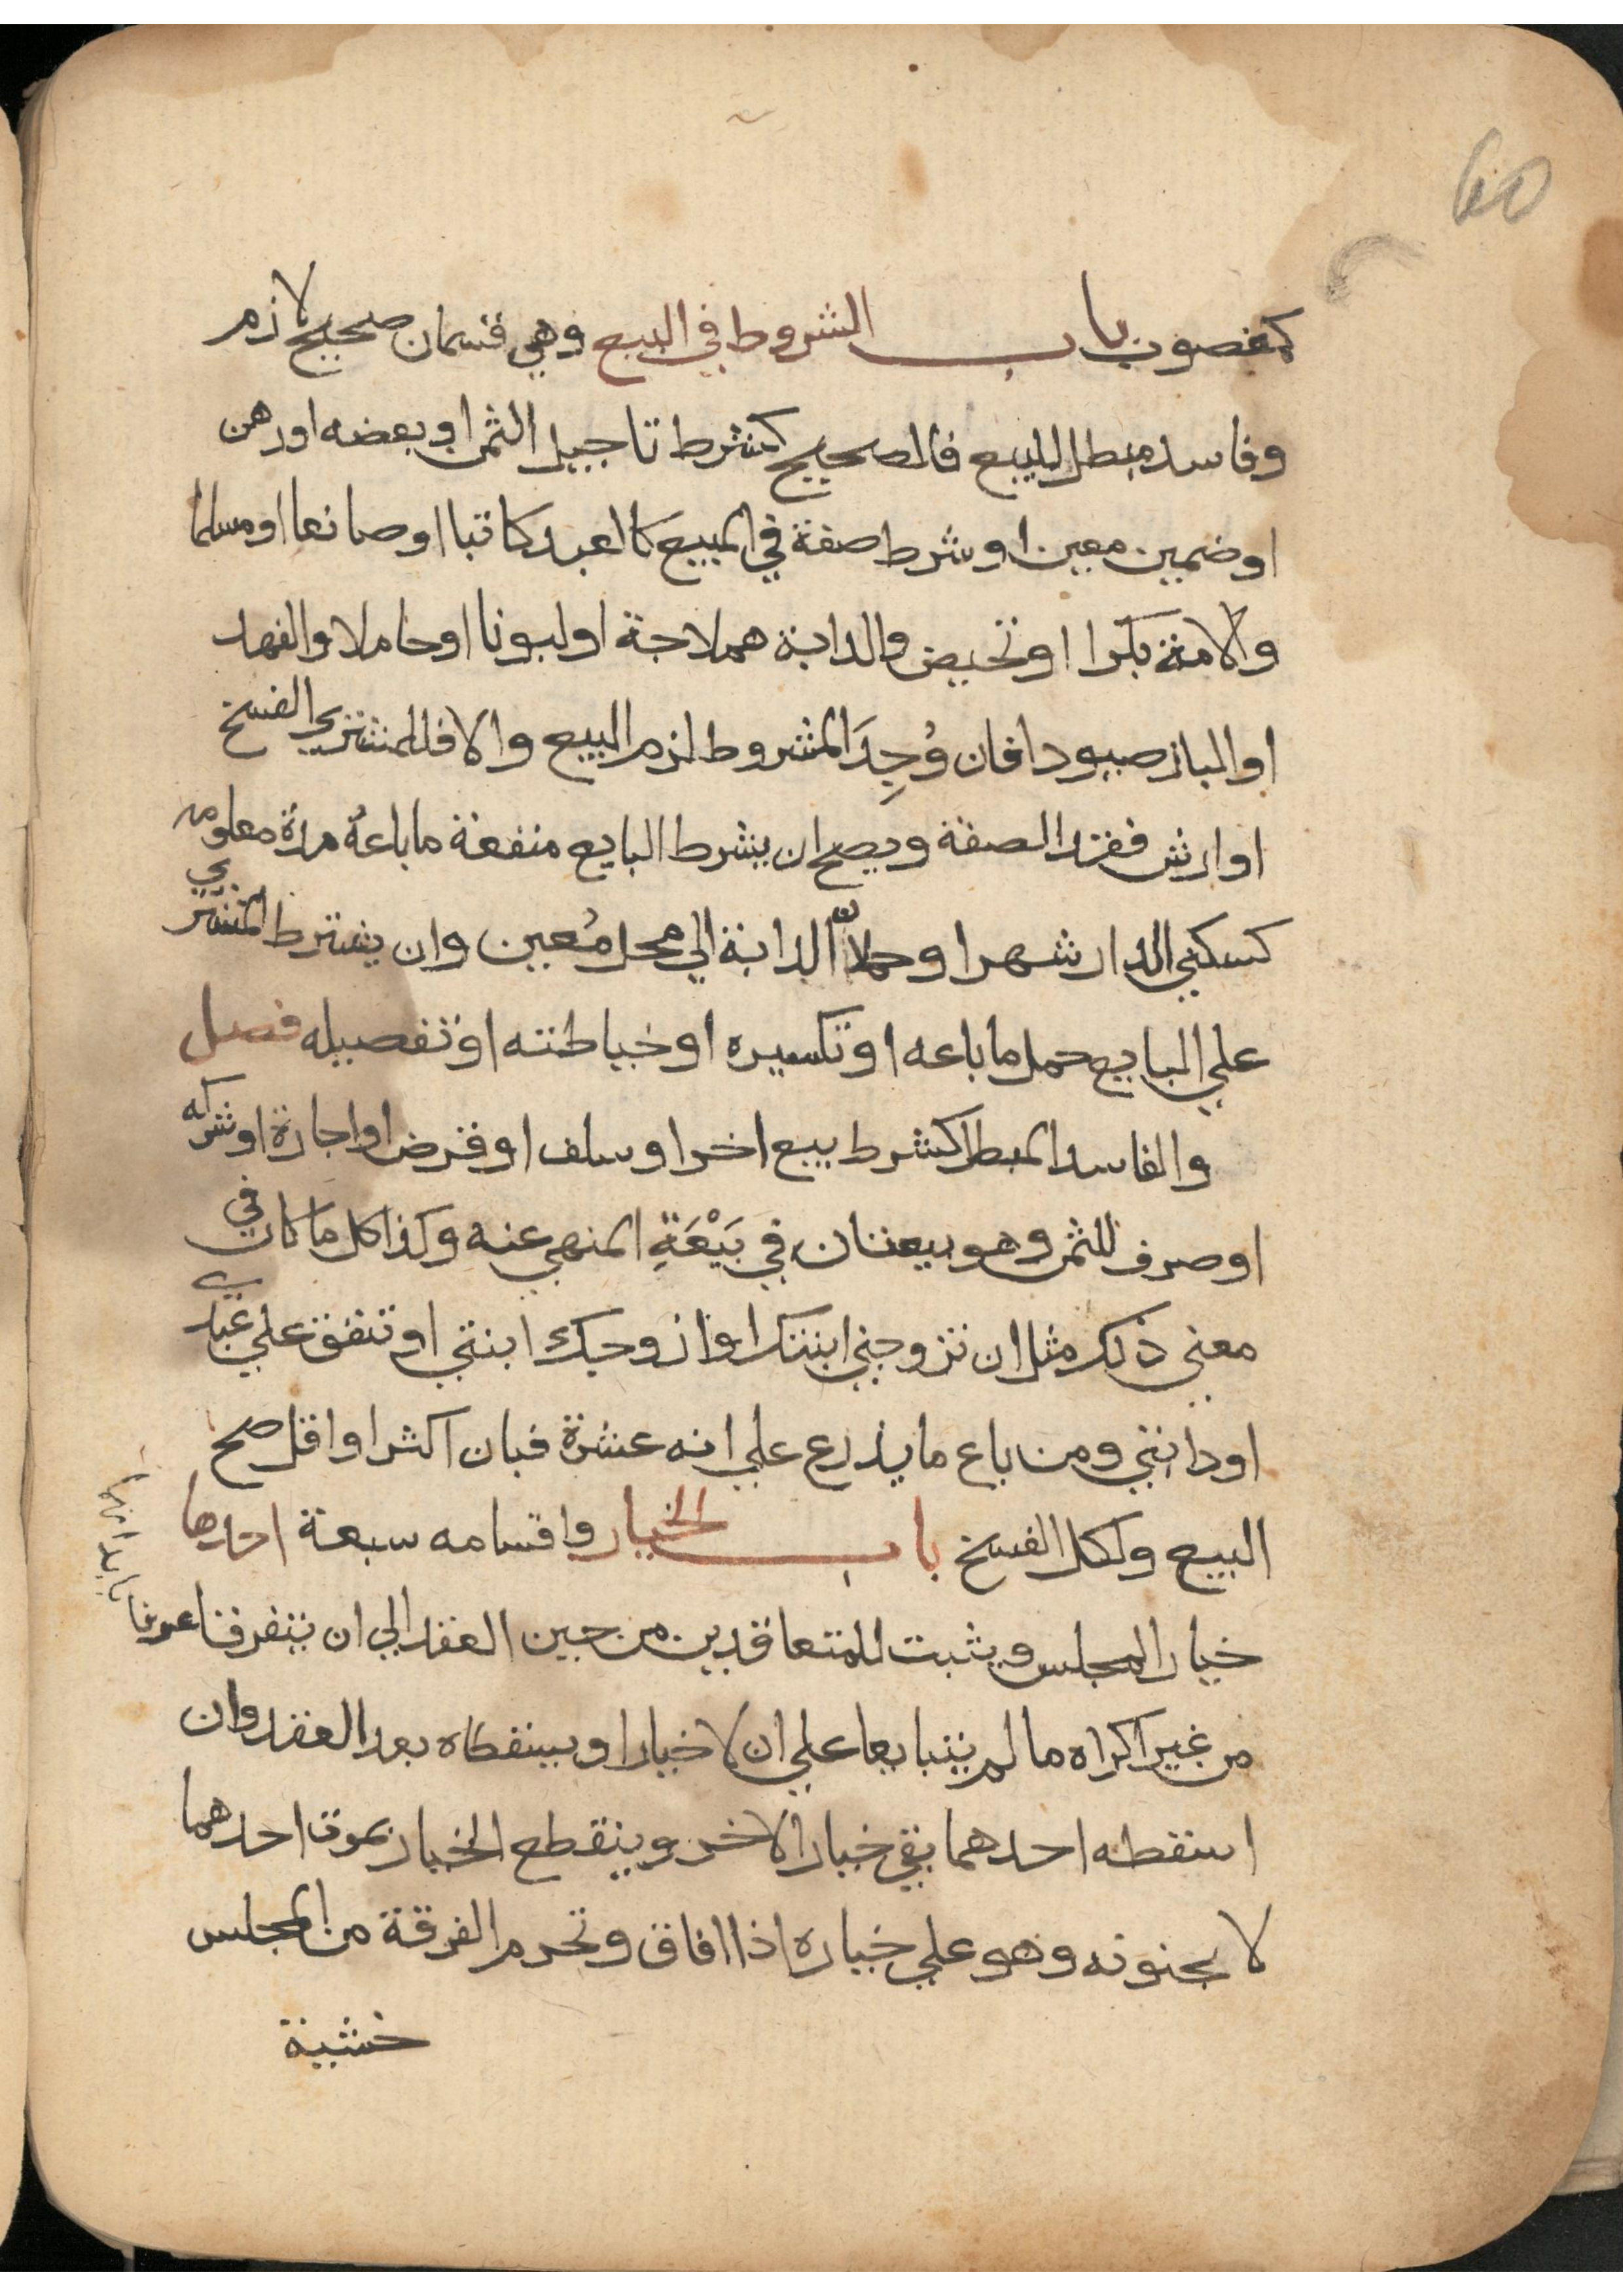 60
كمغصوب باب الشروط في البيع وهي قسمان صحيح لازم
وفاسد مبطل للبيع فالصحيح كشرط تاجيل الثمن او بعضه او رهن
او ضمين معين او شرط صفة في المبيع كالعبد كاتبا او صانعا او مسلما
والامة بكرا او تحيض والدابة هملاجة او لبونا او حاملا والفهد
او الباز صيودا فان وُجِدَ المشروط لزم البيع والا فللمشتري الفسخ
او ارش فقد الصفة ويصح ان يشرط البايع منفعة ما باعهُ مدة معلومه
كسكني الدار شهرا وحملان الدابة الي محل مُعين وان يشترط المشتري
علي البايع حمل ما باعه او تكسيره او خياطته او تفصيله فصل
والفاسد المبطل كشرط بيع اخر او سلف او قرض او اجارة او شركه
او صرف للثمن وهو بيعتان في بَيْعَةٍ المنهي عنه وكذا كل ما كان في
معني ذلك مثل ان تزوجني ابنتك او ازوجك ابنتي او تنفق علي عبدي
او دابتي ومن باع ما يذرع علي انه عشرة فبان اكثر او اقل صح
البيع ولكل الفسخ باب الخيار واقسامه سبعة احدها
خيار المجلس ويثبت للمتعاقدين من حين العقد الي ان يتفرقا عرفا
بابدانهما
من غير اكراه ما لم يتبايعا علي ان لا خيار او يسقطاه بعد العقد وان
اسقطه احدهما بقي خيار الاخر وينقطع الخيار بموت احدهما
لا بجنونه وهو علي خياره اذا افاق وتحرم الفرقة من المجلس
خشية